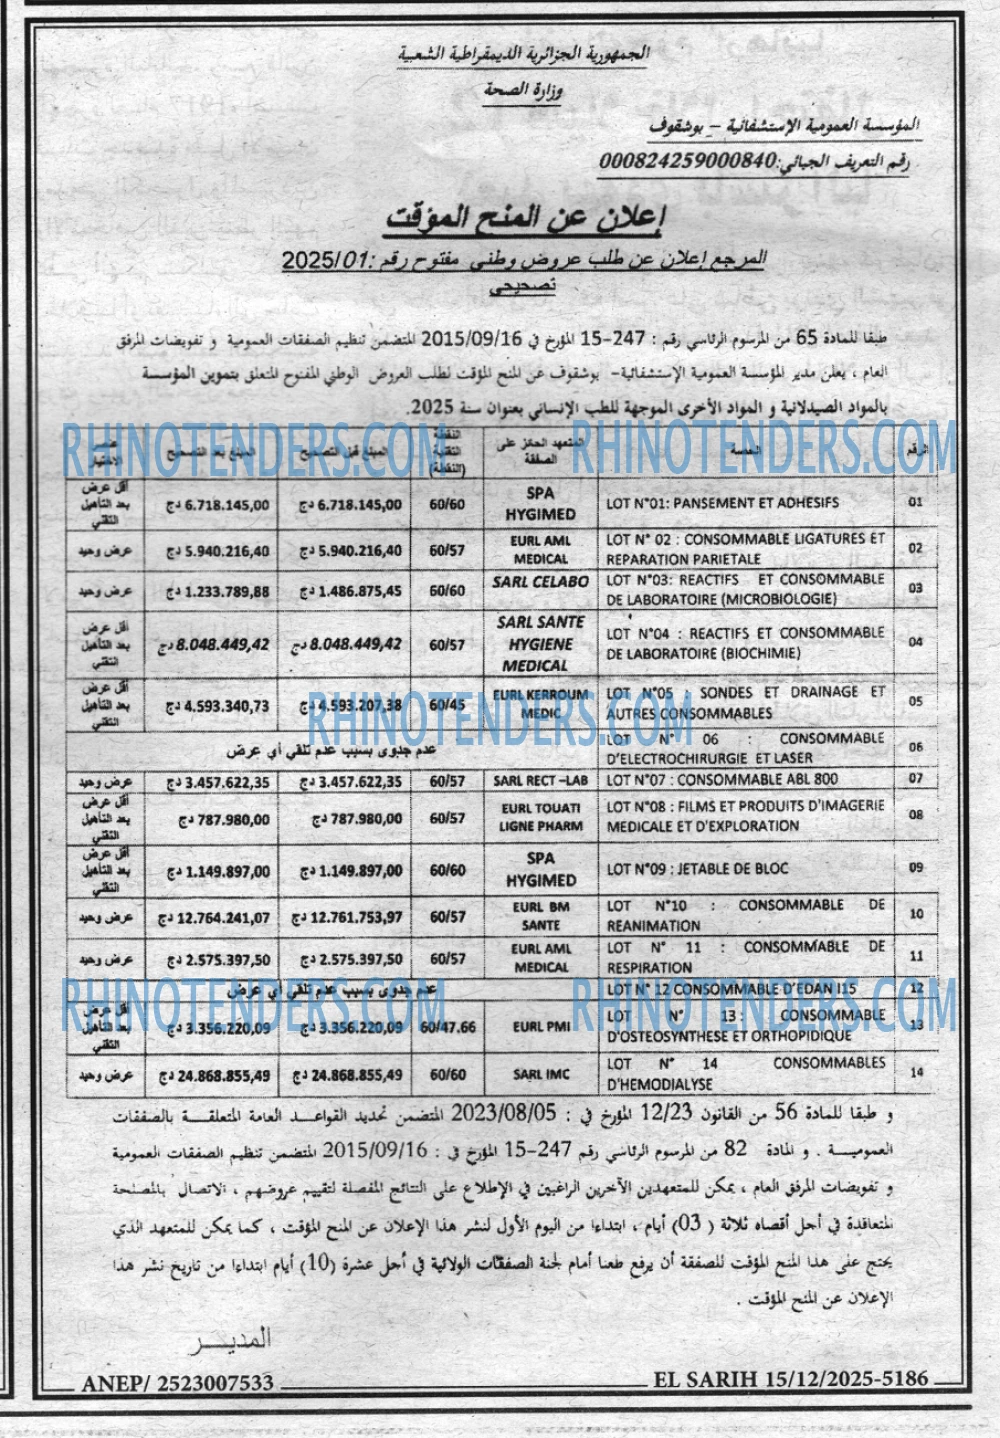 الجمهورية الجزائرية الديمقراطية الشعبية
وزارة الصحة
المؤسسة العمومية الإستشفائية – بوشقوف
رقم التعريف الجبائي: 000824259000840
إعلان عن المنح المؤقت
المرجع إعلان عن طلب عروض وطني مفتوح رقم :2025/01
تصحيحي
طبقا للمادة 65 من المرسوم الرئاسي رقم : 247-15 المؤرخ في 2015/09/16 المتضمن تنظيم الصفقات العمومية و تفويضات المرفق
العام ، يعلن مدير المؤسسة العمومية الإستشفائية– بوشقوف عن المنح المؤقت لطلب العروض الوطني المفتوح المتعلق بتموين المؤسسة
بالمواد الصيدلانية و المواد الأخرى الموجهة للطب الإنساني بعنوان سنة 2025.
RHINOTENDERS.COM RHINOTENDERS.COM
الرقم | الحصة | المتعهد الحائز على الصفقة | النقطة التقنية (النقطة) | المبلغ قبل التصحيح | المبلغ بعد التصحيح | الاختيار
01 | LOT N°01: PANSEMENT ET ADHESIFS | SPA HYGIMED | 60/60 | 6.718.145,00 دج | 6.718.145,00 دج | أقل عرض بعد التأهيل التقني
02 | LOT N° 02 : CONSOMMABLE LIGATURES ET REPARATION PARIETALE | EURL AML MEDICAL | 60/57 | 5.940.216,40 دج | 5.940.216,40 دج | عرض وحيد
03 | LOT N°03: REACTIFS ET CONSOMMABLE DE LABORATOIRE (MICROBIOLOGIE) | SARL CELABO | 60/60 | 1.486.875,45 دج | 1.233.789,88 دج | عرض وحيد
04 | LOT N°04 : REACTIFS ET CONSOMMABLE DE LABORATOIRE (BIOCHIMIE) | SARL SANTE HYGIENE MEDICAL | 60/57 | 8.048.449,42 دج | 8.048.449,42 دج | أقل عرض بعد التأهيل التقني
05 | LOT N°05 : SONDES ET DRAINAGE ET AUTRES CONSOMMABLES | EURL KERROUM MEDIC | 60/45 | 4.593.207,38 دج | 4.593.340,73 دج | أقل عرض بعد التأهيل التقني
RHINOTENDERS.COM
06 | LOT N° 06 : CONSOMMABLE D'ELECTROCHIRURGIE ET LASER | عدم جدوى بسبب عدم تلقي أي عرض
07 | LOT N°07 : CONSOMMABLE ABL 800 | SARL RECT –LAB | 60/57 | 3.457.622,35 دج | 3.457.622,35 دج | عرض وحيد
08 | LOT N°08 : FILMS ET PRODUITS D'IMAGERIE MEDICALE ET D'EXPLORATION | EURL TOUATI LIGNE PHARM | 60/57 | 787.980,00 دج | 787.980,00 دج | أقل عرض بعد التأهيل التقني
09 | LOT N°09 : JETABLE DE BLOC | SPA HYGIMED | 60/60 | 1.149.897,00 دج | 1.149.897,00 دج | أقل عرض بعد التأهيل التقني
10 | LOT N°10 : CONSOMMABLE DE REANIMATION | EURL BM SANTE | 60/57 | 12.761.753,97 دج | 12.764.241,07 دج | عرض وحيد
11 | LOT N° 11 : CONSOMMABLE DE RESPIRATION | EURL AML MEDICAL | 60/57 | 2.575.397,50 دج | 2.575.397,50 دج | عرض وحيد
12 | LOT N° 12 CONSOMMABLE D'EDAN I15 | عدم جدوى بسبب عدم تلقي أي عرض
RHINOTENDERS.COM RHINOTENDERS.COM
13 | LOT N° 13 : CONSOMMABLE D'OSTEOSYNTHESE ET ORTHOPIDIQUE | EURL PMI | 60/47.66 | 3.356.220,09 دج | 3.356.220,09 دج | أقل عرض بعد التأهيل التقني
14 | LOT N° 14 CONSOMMABLES D'HEMODIALYSE | SARL IMC | 60/60 | 24.868.855,49 دج | 24.868.855,49 دج | عرض وحيد
و طبقا للمادة 56 من القانون 12/23 المؤرخ في : 2023/08/05 المتضمن تحديد القواعد العامة المتعلقة بالصفقات
العمومية . و المادة 82 من المرسوم الرئاسي رقم 247-15 المؤرخ في : 2015/09/16 المتضمن تنظيم الصفقات العمومية
و تفويضات المرفق العام ، يمكن للمتعهدين الآخرين الراغبين في الإطلاع على النتائج المفصلة لتقييم عروضهم ، الاتصال بالمصلحة
المتعاقدة في أجل أقصاه ثلاثة ( 03) أيام ، ابتداءا من اليوم الأول لنشر هذا الإعلان عن المنح المؤقت ، كما يمكن للمتعهد الذي
يحتج على هذا المنح المؤقت للصفقة أن يرفع طعنا أمام لجنة الصفقات الولائية في أجل عشرة (10) أيام ابتداءا من تاريخ نشر هذا
الإعلان عن المنح المؤقت .
المديــر
ANEP/ 2523007533
EL SARIH 15/12/2025-5186